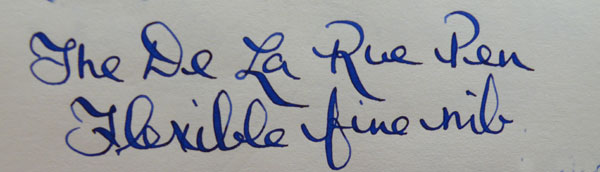 The De La Rue Pen
Flexible fine nib